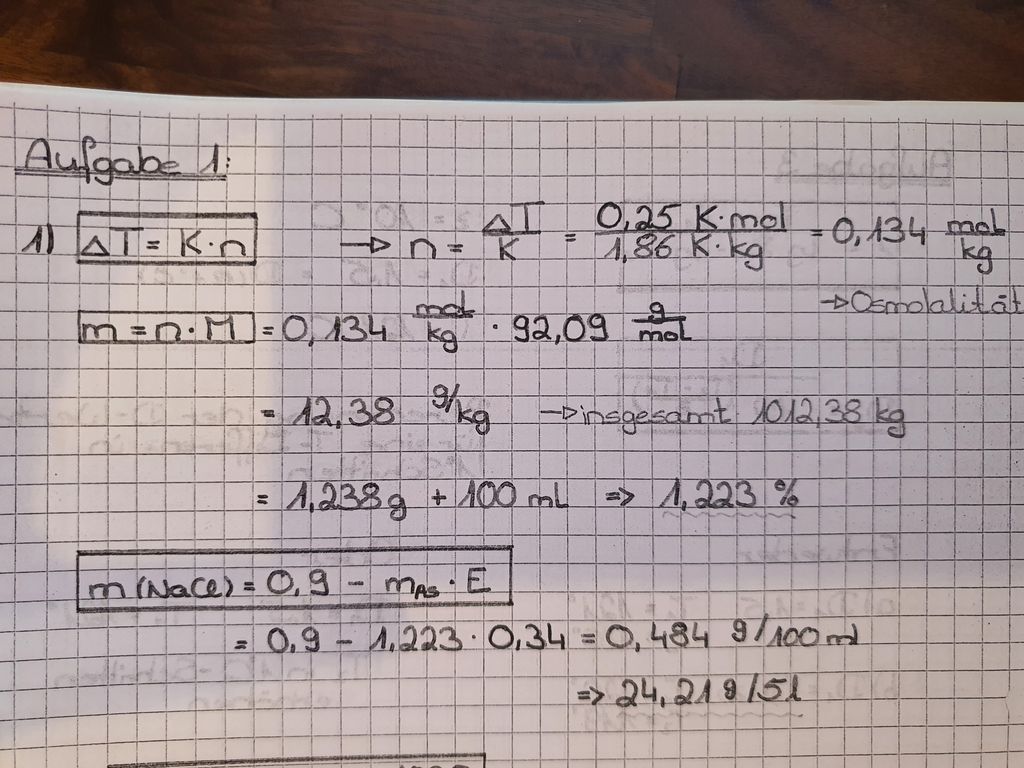 Aufgabe 1:
1) ΔT = K·n → n = ΔT/K = 0,25 K·mol / 1,86 K·kg = 0,134 mol/kg
→ Osmolalität
m = n·M = 0,134 mol/kg · 92,09 g/mol
= 12,38 g/kg → insgesamt 1012,38 kg
= 1,238g + 100 mL ⇒ 1,223 %
m (NaCl) = 0,9 - mAs · E
= 0,9 - 1,223 · 0,34 = 0,484 g/100 ml
⇒ 24,21 g/5l